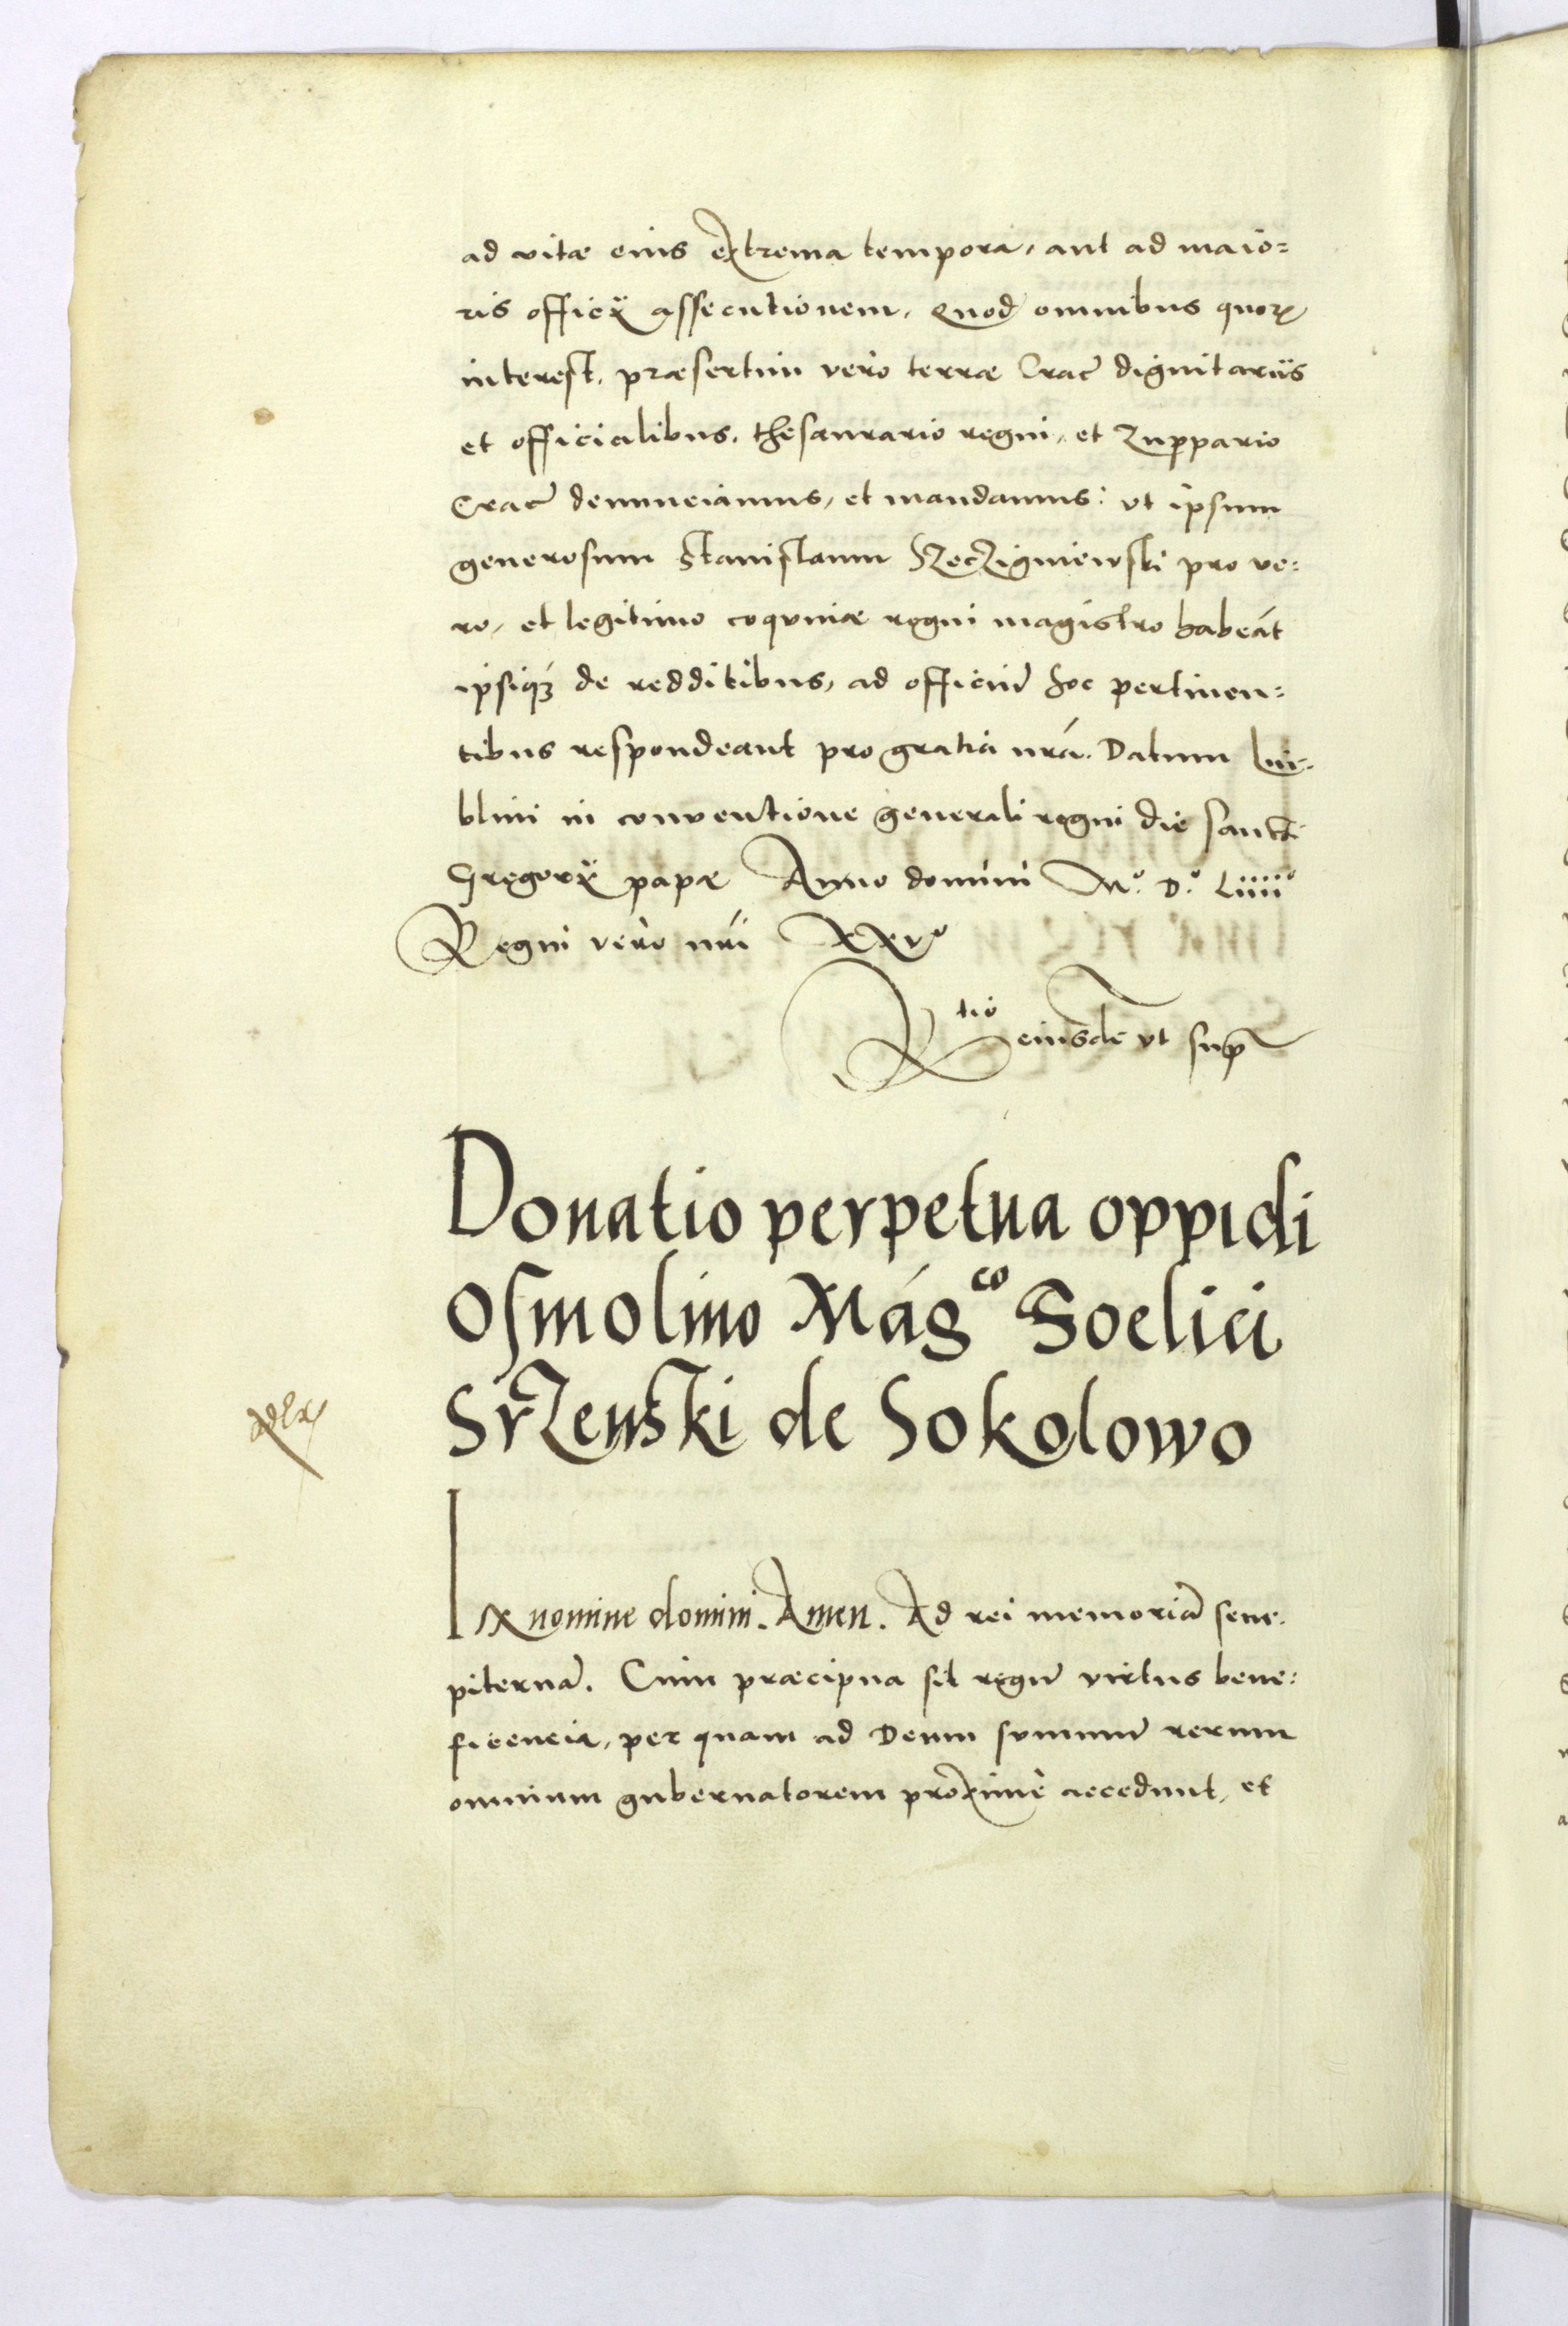 ad vitæ eius extrema tempora, aut ad maio=
ris officÿ assecutionem. Quod omnibus quorꝝ
interest, præsertim vero terræ Crac̃ dignitariis
et officialibus, thesaurario regni, et Zuppario
Crac̃ denunciamus, et mandamus: vt ipsum
generosum Stanislaum SzecZigniewski pro ve=
ro, et legitimo coqvinæ regni magistro habeãt
ipsiqꝫ de redditibus, ad officiũ hoc pertinen=
tibus respondeant pro gratia nrã. Datum Lu-
blini in conventione generali regni die sancti
Gregorÿ papæ Anno domini Mº. Dº. Liiiiº
Regni vero nri XXvº
Rtio eiusdẽ vt sup
Donatio perpetua oppidi
Osmolino Mágco Foelici
SrZenski de Sokolowo
IN nomine domini. Amen. Ad rei memoriã sem-
piternã. Cum præcipua sit regũ virtus bene=
ficencia, per quam ad Deum svmmũ rerum
omnium gubernatorem proximè accedunt, et